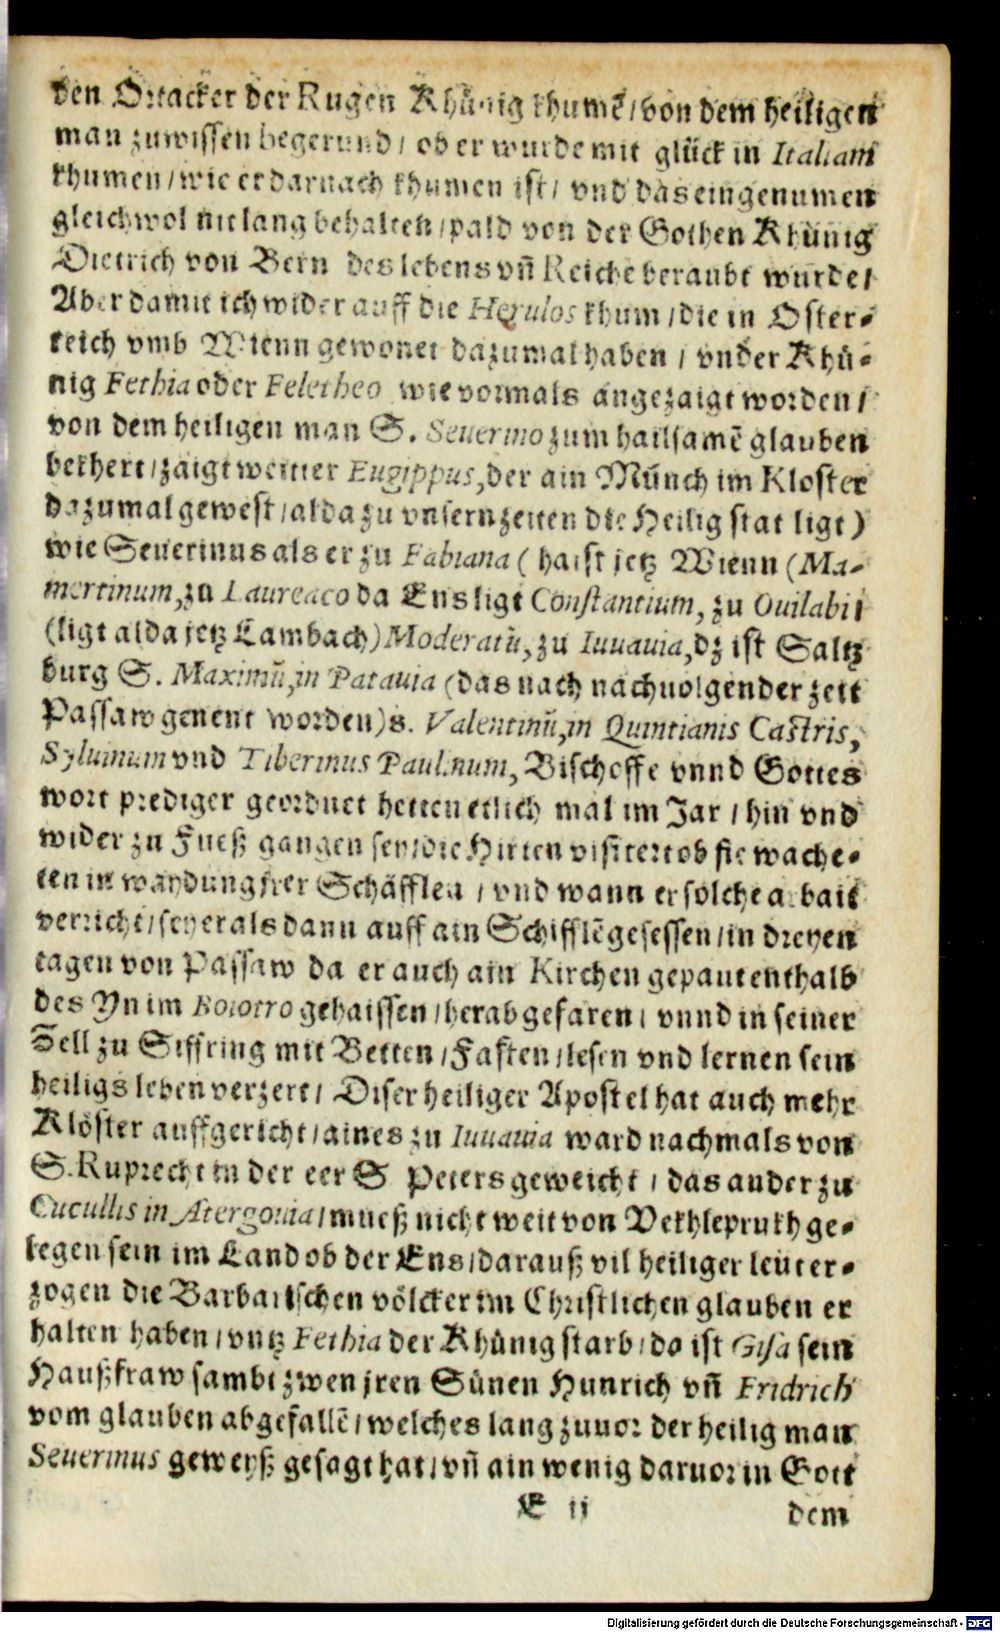 den Ottacker der Rugen Khünig khumẽ / von dem heiligen
man zuwissen begerund / ob er wurde mit glück in Italiam
khumen / wie er darnach khumen ist / vnd das eingenumen
gleichwol nit lang behalten / pald von der Gothen Khünig
Dietrich von Bern des lebens vñ Reiche beraubt wurde /
Aber damit ich wider auff die Herulos khum / die in Oster-
reich vmb Wienn gewonet dazumal haben / vnder Khü-
nig Fethia oder Feletheo wie vormals angezaigt worden /
von dem heiligen man S. Seuerino zum hailsamẽ glauben
bekhert / zaigt weitter Eugippus, der ain Münch im Kloster
dazumal gewest / alda zu vnsern zeiten die Heilig stat ligt)
wie Seuerinus als er zu Fabiana ( haist jetz Wienn (Ma-
mertinum, zu Laureaco da Ens ligt Constantium, zu Ouilabis
(ligt alda jetz Lambach) Moderatũ, zu Iuuauia, dz ist Saltz
burg S. Maximũ, in Patauia (das nach nachuolgender zeit
Passaw genent worden) s. Valentinũ, in Quintianis Castris,
Syluinum vnd Tiberinus Paulinum, Bischoffe vnnd Gottes
wort prediger geordnet hetten etlich mal im Jar / hin vnd
wider zu Fueß gangen sey / die Hirten visitert ob sie wache-
ten in waydung jrer Schäfflen / vnd wann er solche arbait
verricht / sey er als dann auff ain Schifflẽ gesessen / in dreyen
tagen von Passaw da er auch ain Kirchen gepaut enthalb
des Yn im Boiotro gehaissen / herab gefaren / vnnd in seiner
Zell zu Siffring mit Betten / Fasten / lesen vnd lernen sein
heiligs leben verzert / Diser heiliger Apostel hat auch mehr
Klöster auffgericht / aines zu Iuuauia ward nachmals von
S. Ruprecht in der eer S Peters geweicht / das ander zu
Cucullis in Atergouia / mueß nicht weit von Vekhleprukh ge-
legen sein im Land ob der Ens / darauß vil heiliger leüt er-
zogen die Barbarischen völcker im Christlichen glauben er
halten haben / vntz Fethia der Khünig starb / do ist Gisa sein
Haußfraw sambt zwen jren Sünen Hunrich vñ Fridrich
vom glauben abgefallẽ / welches lang zuuor der heilig man
Seuerinus geweyß gesagt hat / vñ ain wenig daruor in Gott
E ij
dem
Digitalisierung gefördert durch die Deutsche Forschungsgemeinschaft - DFG